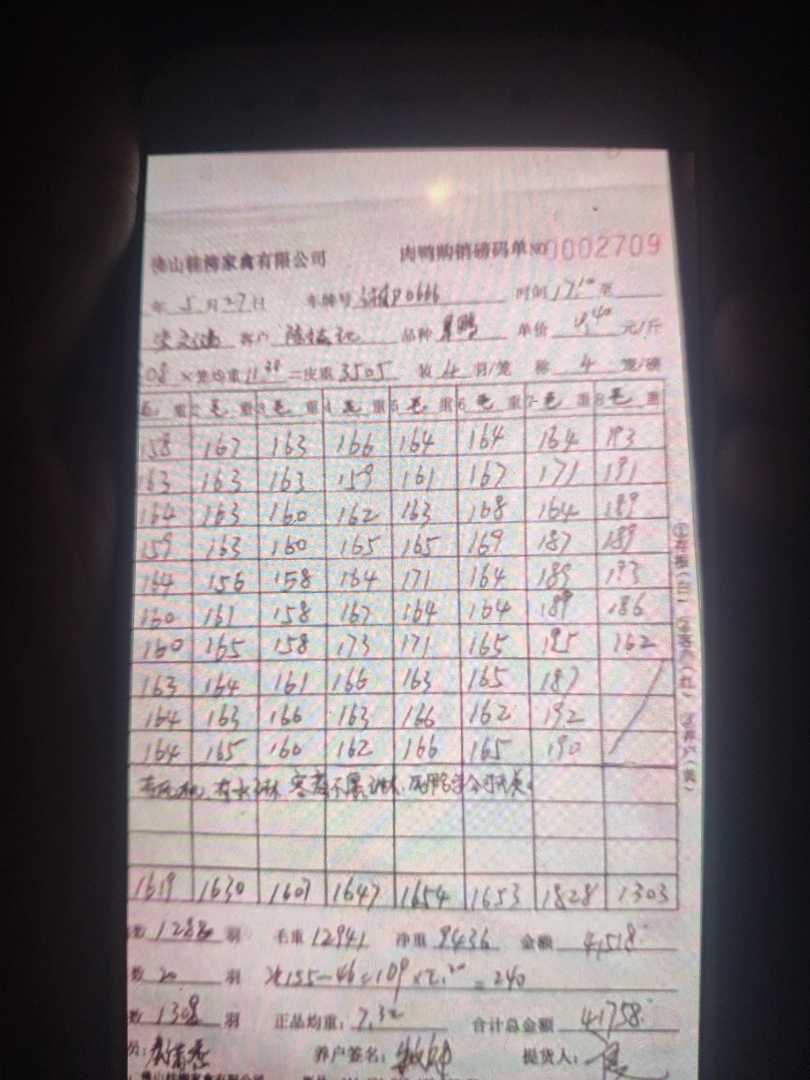 佛山桂柳家禽有限公司 肉鸭购销磅码单 NO 0002709
年 5 月 27 日 车牌号 时间 17:10 至
客户 品种 单价 4.40 元/斤
08 × 笼均重 11.38 = 皮重 3505 装 4 羽/笼 称 4 笼/磅
毛 重 2 毛 重 3 毛 重 4 毛 重 5 毛 重 6 毛 重 7 毛 重 8 毛 重
158 167 163 166 164 164 164 193
163 163 163 159 161 167 171 191
164 163 160 162 163 168 164 189
159 163 160 165 165 169 187 189
164 156 158 164 171 164 189 193
160 161 158 167 164 164 189 186
160 165 158 173 171 165 195 162
163 164 161 166 163 165 187
164 163 166 163 166 162 192
164 165 160 162 166 165 190
1619 1630 1607 1647 1654 1653 1828 1303
数 1288 羽 毛重 12941 净重 9436 金额 41518
数 20 羽 155-46=109×2.20=240
数 1308 羽 正品均重: 7.32 合计总金额 41758
养户签名: 提货人:
佛山桂柳家禽有限公司
①存根(白) ②客户(红) ③养户(黄)